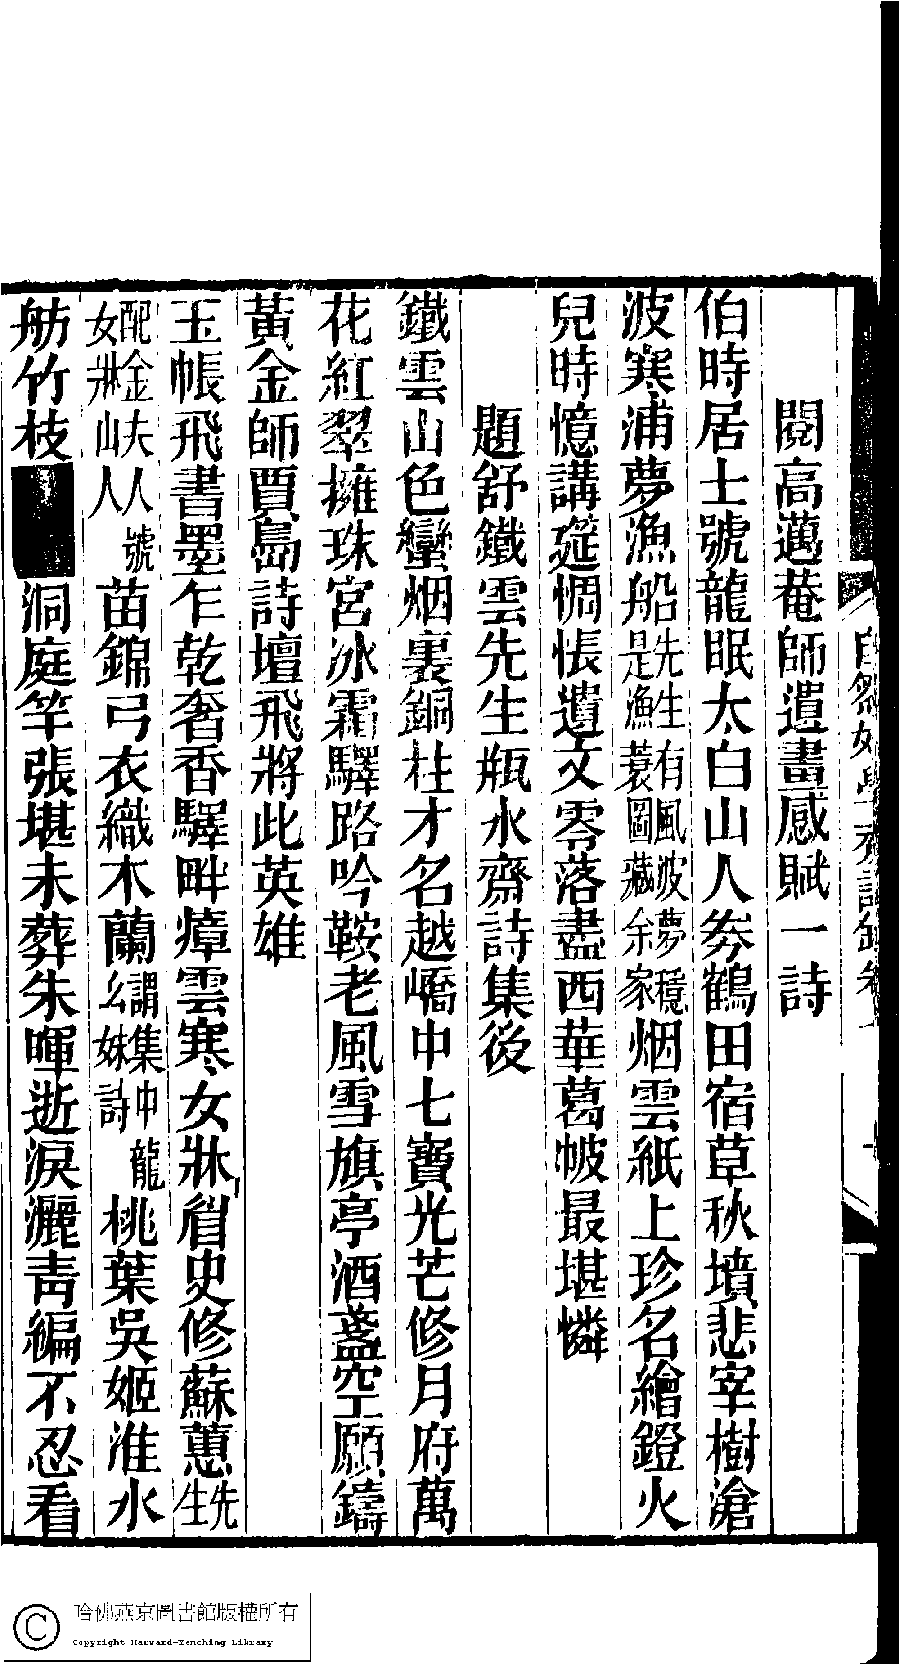 自然好學齋詩鈔卷
閱高邁菴師遺畫感賦一詩
伯時居士號龍眠太白山人券鶴田宿草秋墳悲宰樹滄
波寒浦夢漁船先生有風波夢穩是漁蓑圖藏余家烟雲紙上珍名繪鐙火
兒時憶講筵惆悵遺文零落盡西華葛帔最堪憐
題舒鐵雲先生瓶水齋詩集後
鐵雲山色蠻烟裏銅柱才名越嶠中七寶光芒修月府萬
花紅翠擁珠宮冰霜驛路吟鞍老風雪旗亭酒盞空願鑄
黃金師賈島詩壇飛將此英雄
玉帳飛書墨乍乾奢香驛畔瘴雲寒女牀眉史修蘇蕙先生
配金夫人號女牀山人苗錦弓衣織木蘭謂集中龍么妹詩桃葉吳姬淮水
舫竹枝洞庭竿張堪未葬朱暉逝淚灑靑編不忍看
哈佛燕京圖書館版權所有
Copyright Harvard-Yenching Library